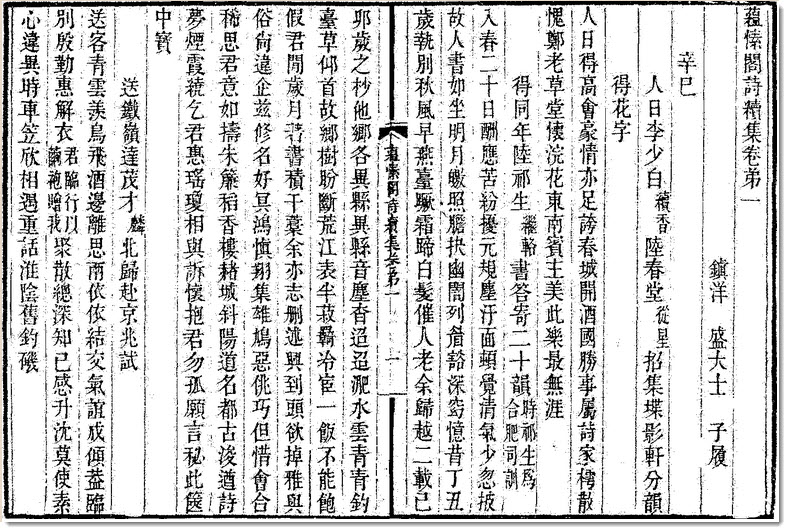 蘊愫閣詩續集卷第一
鎮洋　盛大士　子履
辛巳
人日李少白積香陸春堂從星招集堞影軒分韻
得花字
人日得高會豪情亦足誇春城開酒國勝事屬詩家樗散
愧鄭老草堂懷浣花東南賓主美此樂最無涯
得同年陸祁生繼輅書答寄二十韻時祁生為合肥司訓
入春二十日酬應苦紛擾元規塵汙面頓覺清氣少忽披
故人書如坐明月皦照膽抉幽闇列眉豁深窈憶昔丁丑
歲執別秋風早燕臺驅霜蹄白髮催人老余歸越二載已
蘊愫閣詩續集卷第一
一
卯歲之杪他鄉各異縣異縣音塵杳迢迢淝水雲青青釣
臺草仰首故鄉樹盼斷荒江表半菽羈冷宦一飯不能飽
假君閒歲月著書積千藁余亦志刪述興到頭欲掉雅與
俗尙違企茲修名好冥鴻慎翔集雄鳩惡佻巧但惜會合
稀思君意如擣朱簾稻香樓赭城斜陽道名都古浚遒詩
夢煙霞繞乞君惠瑤瓊相與訴懷抱君勿孤願言秘此篋
中寶
送鐵嶺達茂才麟北歸赴京兆試
送客青雲羨鳥飛酒邊離思兩依依結交氣誼成傾蓋臨
別殷勤惠解衣君臨行以繭袍贈我聚散總深知己感升沈莫使素
心違異時車笠欣相遇重話淮陰舊釣磯